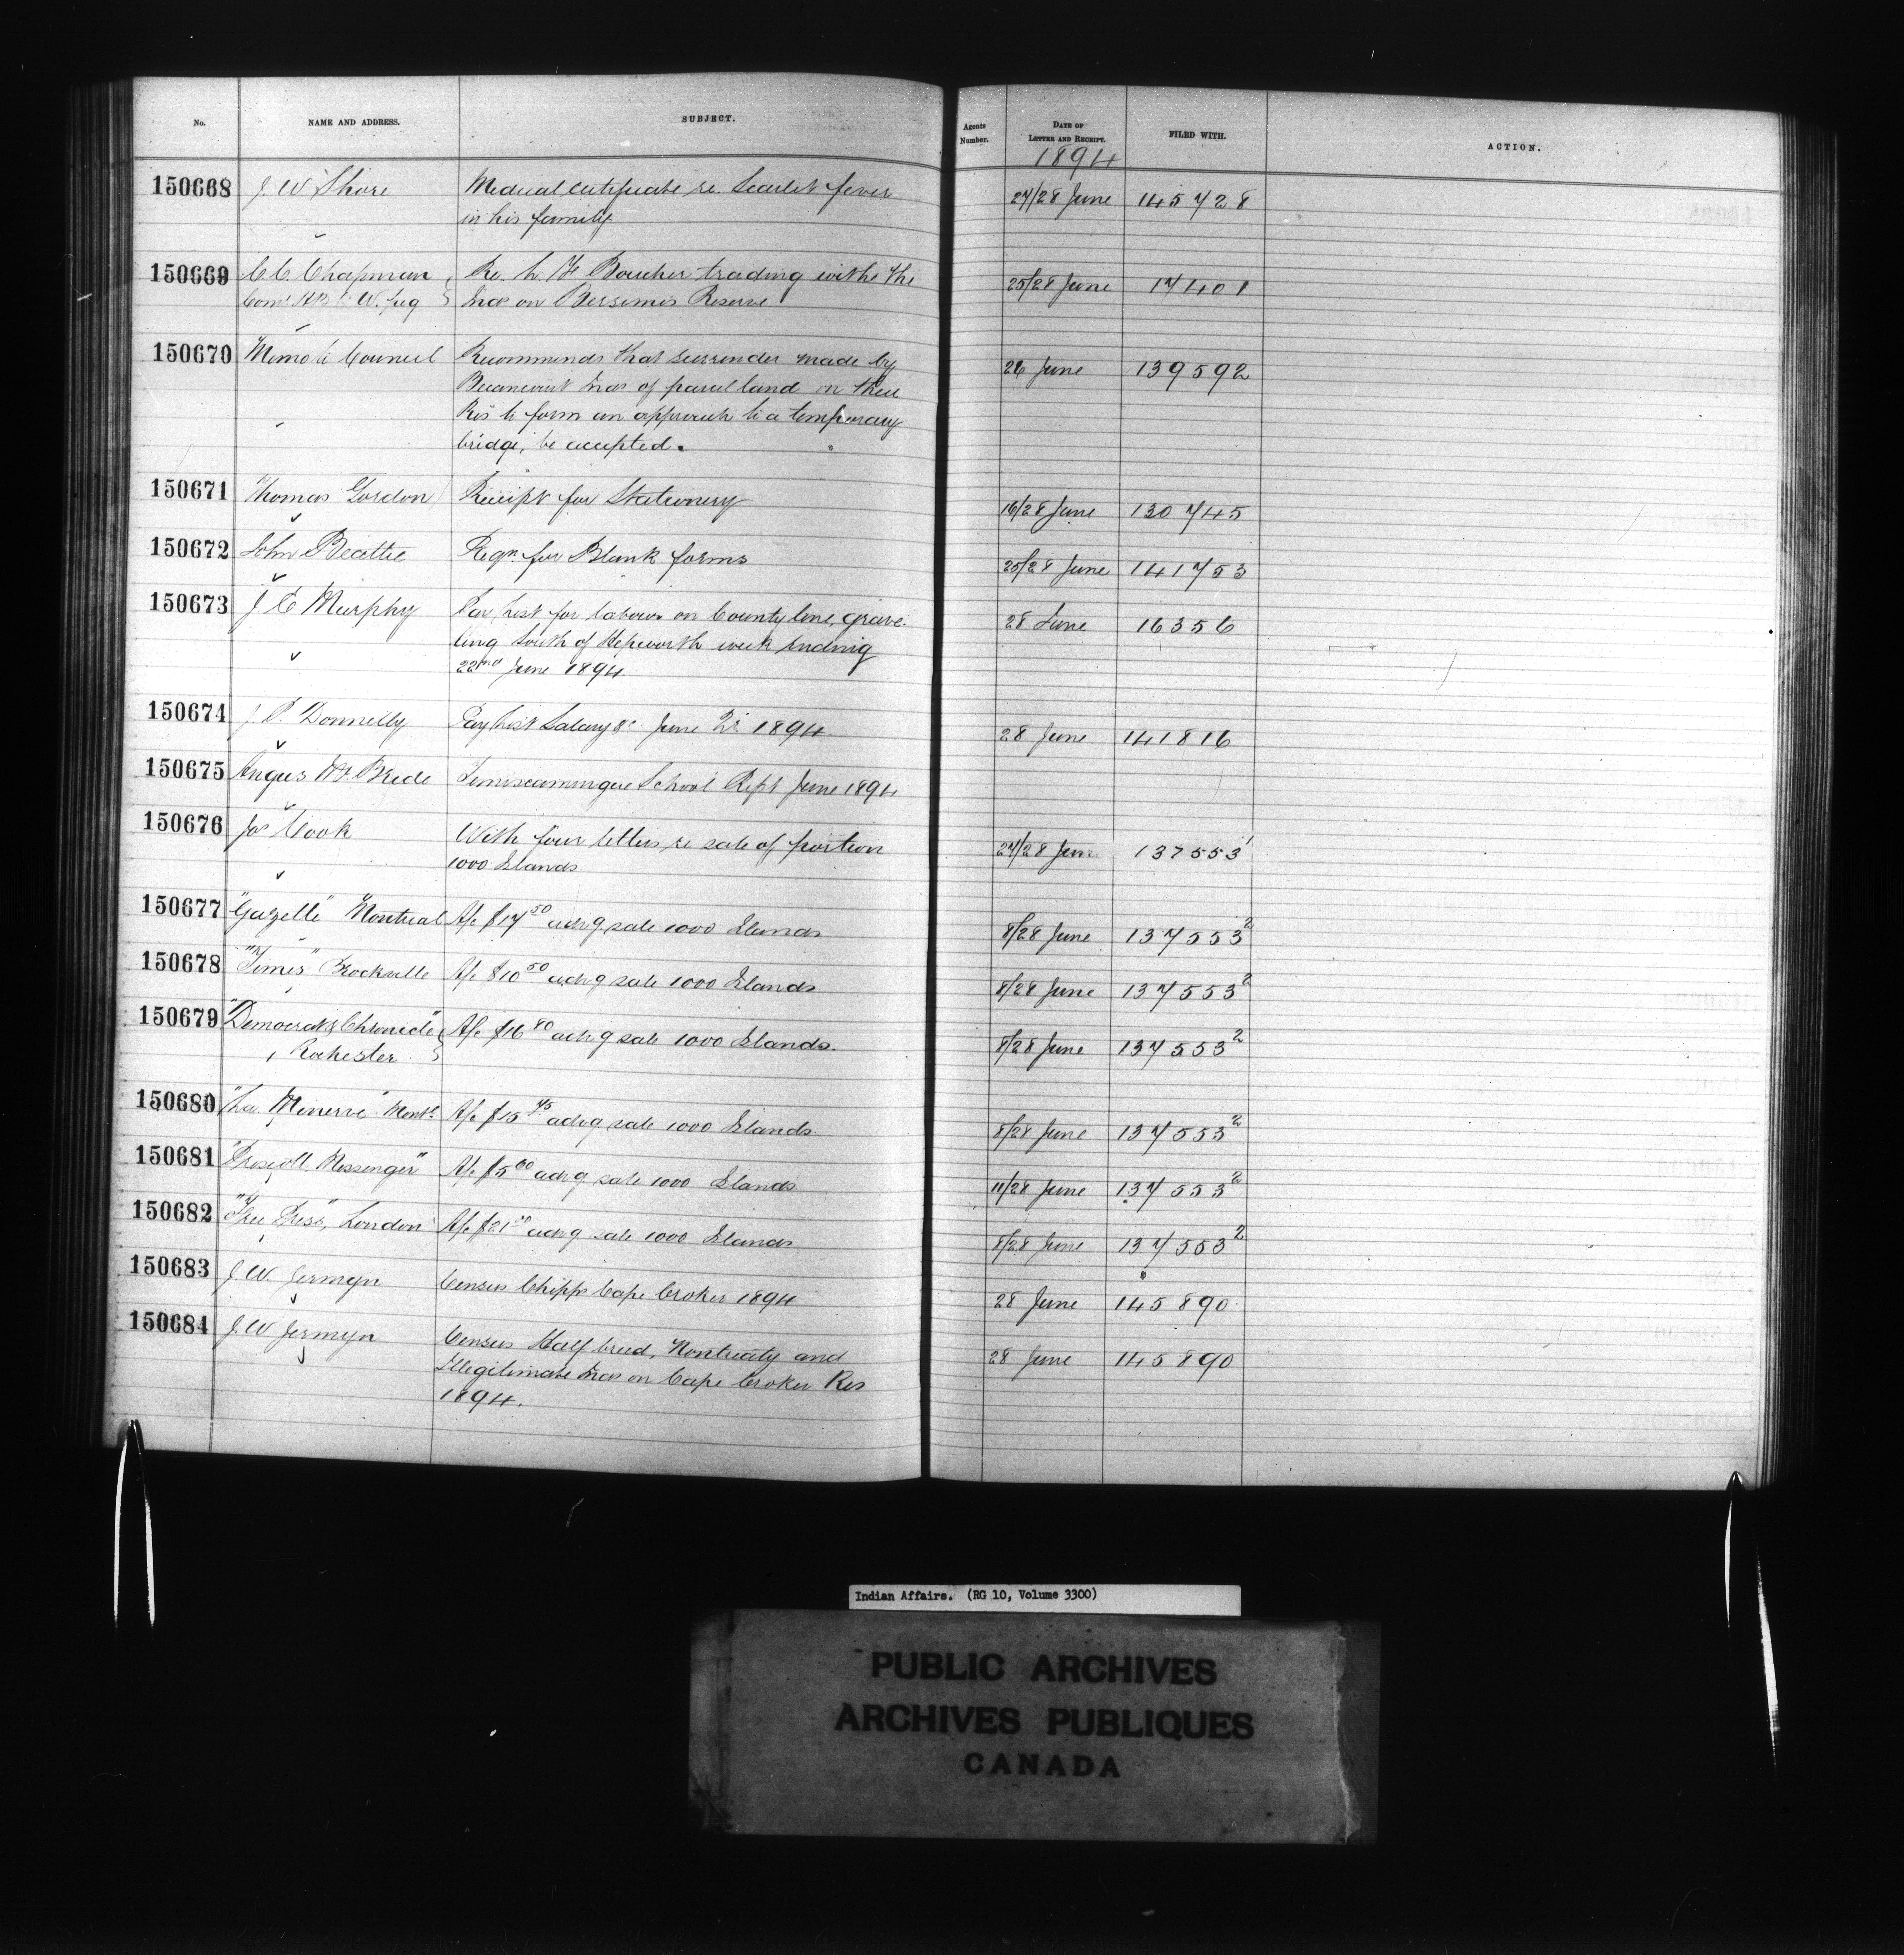 No. NAME AND ADDRESS. SUBJECT. Agents Number. DATE OF LETTER AND RECEIPT. FILED WITH. ACTION.
1894
150668 J. W Shore Medical certificate re. Scarlet fever 27/28 June 145728
in his family
150669 C. C. Chapman Re. L. H Boucher trading withe the 25/28 June 17401
Comr H B C W.peg Inds on Bersimis Reserve
150670 Memo to Council Recommends that surrender made by 26 June 139592
Becancourt Inds of parcel land on their
Res to form an approach to a temporary
bridge, be accepted.
150671 Thomas Gordon Receipt for Stationery 16/28 June 130745
150672 John Beattie Reqn for Blank forms 25/28 June 141753
150673 J C Murphy Pay List for labour on County line, grave 28 June 16356
ling South of Hepworth week ending
22nd June 1894
150674 J. P. Donnelly Pay List Salary &c June Qr 1894 28 June 141816
150675 Angus McBride Temiscamingue School Rept June 1894
150676 Jas Cook With four letters re sale of portion 27/28 June 137553 1
1000 Islands
150677 "Gazette" Montreal A/c $17 50 advg sale 1000 Islands 8/28 June 137553 2
150678 "Times" Brockville A/c $10 50 advg sale 1000 Islands 8/28 June 137553 2
150679 "Democrat & Chronicle" A/c $16 80 advg sale 1000 Islands. 8/28 June 137553 2
Rochester
150680 "La Minerve" Montl A/c $15 75 advg sale 1000 Islands 8/28 June 137553 2
150681 "Prescott Messenger" A/c $5 60 advg sale 1000 Islands 11/28 June 137553 2
150682 "Free Press", London A/c $21 advg sale 1000 Islands 8/28 June 137553 2
150683 J. W. Jermyn Census Chipps Cape Croker 1894 28 June 145890
150684 J. W Jermyn Census Half breed, Nontreaty and 28 June 145890
Illegitimate Inds on Cape Croker Res
1894.
Indian Affairs. (RG 10, Volume 3300)
PUBLIC ARCHIVES
ARCHIVES PUBLIQUES
CANADA